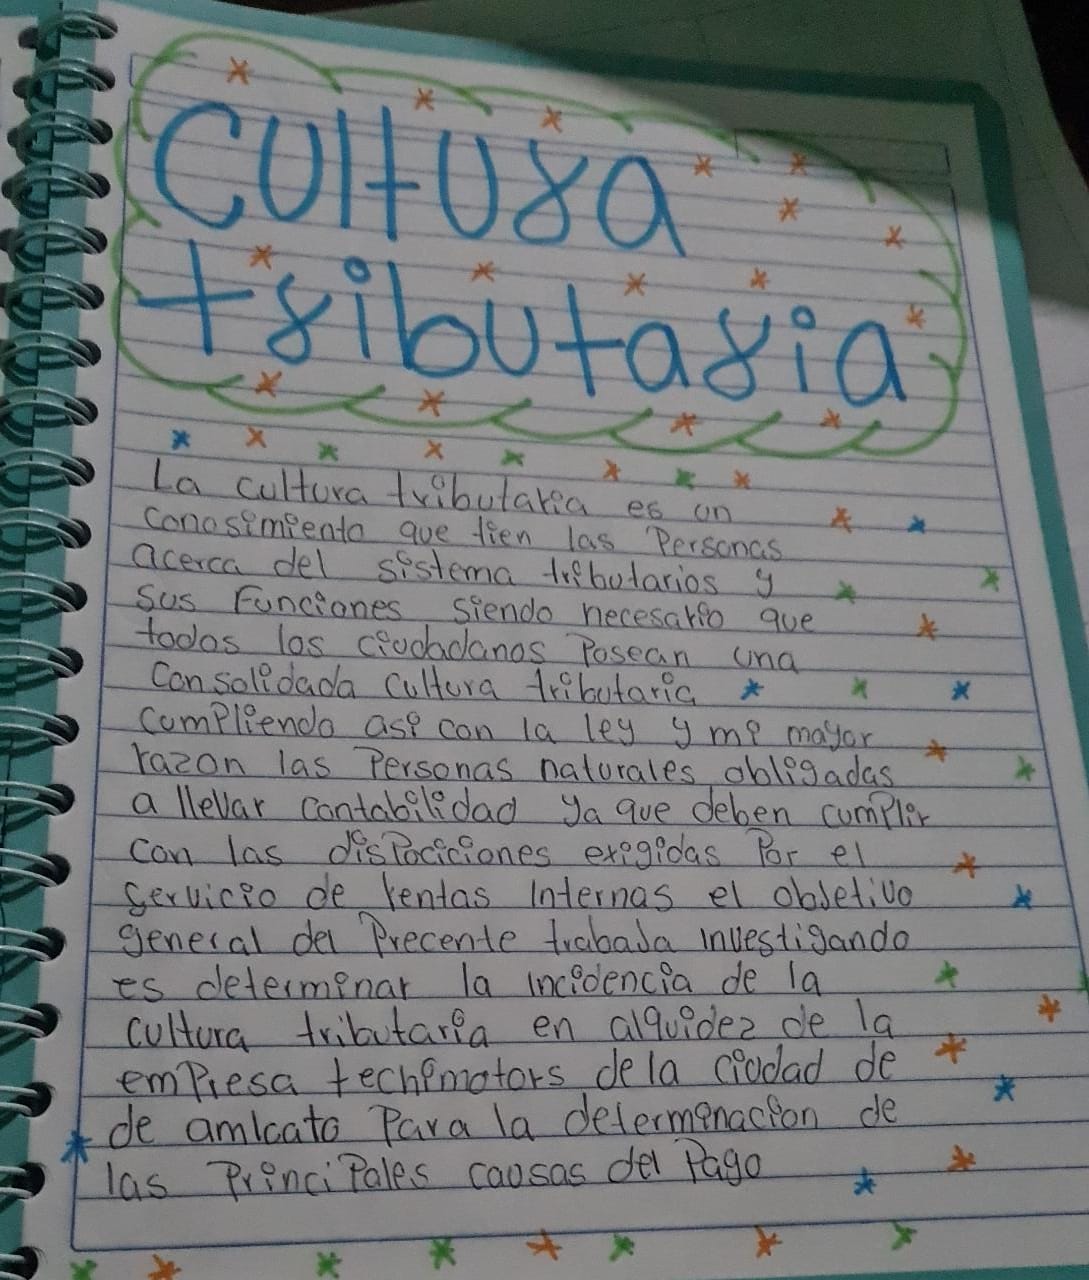 Cultura
tributaria
La cultura tributaria es un
conosimiento que tien las Personas
acerca del sistema tributarios y
sus Funciones siendo necesario que
todos los ciudadanos Posean una
Consolidada cultura tributaria
cumpliendo asi con la ley y mi mayor
razon las Personas naturales obligadas
a llevar contabilidad ya que deben cumplir
con las dispociciones exigidas Por el
servicio de rentas Internas el objetivo
general del Precente trabaja investigando
es determinar la incidencia de la
cultura tributaria en alquidez de la
empresa techimotors de la ciudad de
de amlcato Para la determinacion de
las Principales causas del Pago